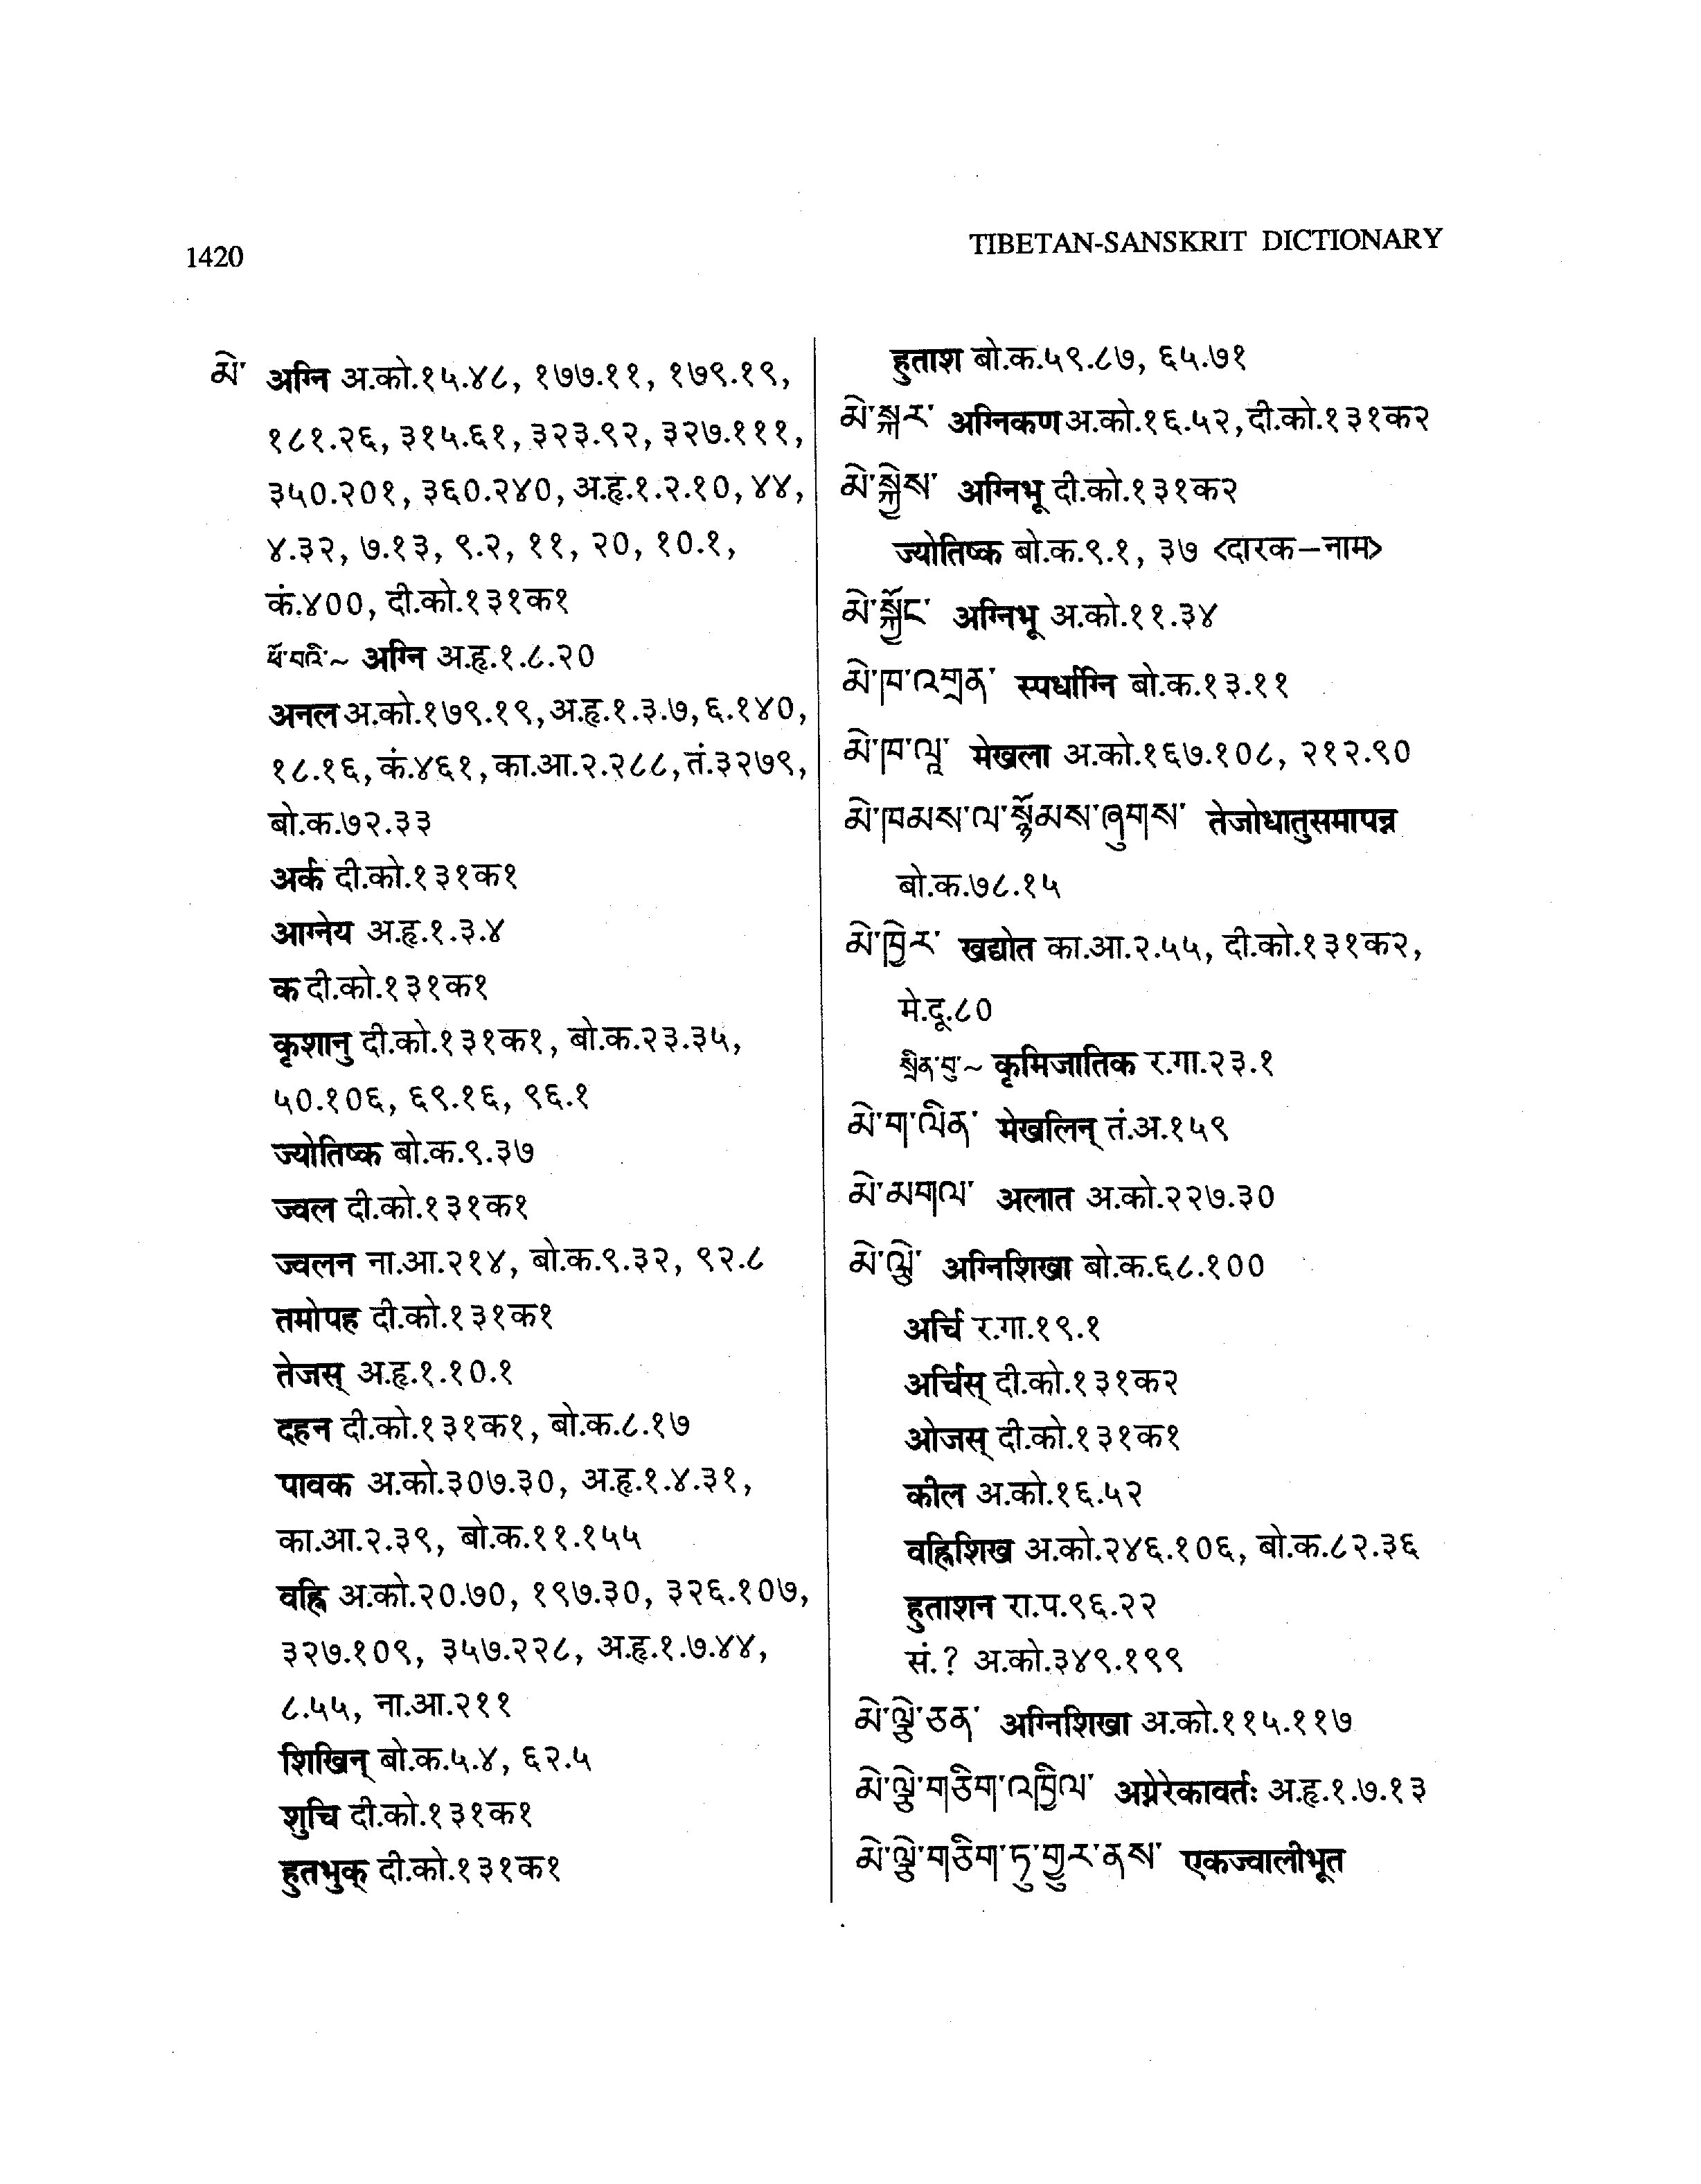 1420
TIBETAN-SANSKRIT DICTIONARY
མེ་ अग्नि अ.को.१५.४८, १७७.११, १७९.१९,
१८१.२६, ३१५.६१, ३२३.९२, ३२७.१११,
३५०.२०१, ३६०.२४०, अ.हृ.१.२.१०, ४४,
४.३२, ७.१३, ९.२, ११, २०, १०.१,
कं.४००, दी.को.१३१क१
ཕོ་བའི་~ अग्नि अ.हृ.१.८.२०
अनल अ.को.१७९.१९, अ.हृ.१.३.७, ६.१४०,
१८.१६, कं.४६१, का.आ.२.२८८, तं.३२७९,
बो.क.७२.३३
अर्क दी.को.१३१क१
आग्नेय अ.हृ.१.३.४
क दी.को.१३१क१
कृशानु दी.को.१३१क१, बो.क.२३.३५,
५०.१०६, ६९.१६, ९६.१
ज्योतिष्क बो.क.९.३७
ज्वल दी.को.१३१क१
ज्वलन ना.आ.२१४, बो.क.९.३२, ९२.८
तमोपह दी.को.१३१क१
तेजस् अ.हृ.१.१०.१
दहन दी.को.१३१क१, बो.क.८.१७
पावक अ.को.३०७.३०, अ.हृ.१.४.३१,
का.आ.२.३९, बो.क.११.१५५
वह्नि अ.को.२०.७०, १९७.३०, ३२६.१०७,
३२७.१०९, ३५७.२२८, अ.हृ.१.७.४४,
८.५५, ना.आ.२११
शिखिन् बो.क.५.४, ६२.५
शुचि दी.को.१३१क१
हुतभुक् दी.को.१३१क१
हुताश बो.क.५९.८७, ६५.७१
མེ་སྐར་ अग्निकण अ.को.१६.५२, दी.को.१३१क२
མེ་སྐྱེས་ अग्निभू दी.को.१३१क२
ज्योतिष्क बो.क.९.१, ३७ <दारक–नाम>
མེ་སྐྱོང་ अग्निभू अ.को.११.३४
མེ་ཁ་འགྲན་ स्पर्धाग्नि बो.क.१३.११
མེ་ཁ་ལཱ་ मेखला अ.को.१६७.१०८, २१२.९०
མེ་ཁམས་ལ་སྙོམས་ཞུགས་ तेजोधातुसमापन्न
बो.क.७८.१५
མེ་ཁྱེར་ खद्योत का.आ.२.५५, दी.को.१३१क२,
मे.दू.८०
སྲིན་བུ་~ कृमिजातिक र.गा.२३.१
མེ་ག་ལིན་ मेखलिन् तं.अ.१५९
མེ་མགལ་ अलात अ.को.२२७.३०
མེ་ལྕེ་ अग्निशिखा बो.क.६८.१००
अर्चि र.गा.१९.१
अर्चिस् दी.को.१३१क२
ओजस् दी.को.१३१क१
कील अ.को.१६.५२
वह्निशिख अ.को.२४६.१०६, बो.क.८२.३६
हुताशन रा.प.९६.२२
सं.? अ.को.३४९.१९९
མེ་ལྕེ་ཅན་ अग्निशिखा अ.को.११५.११७
མེ་ལྕེ་གཅིག་འཁྱིལ་ अग्नेरेकावर्तः अ.हृ.१.७.१३
མེ་ལྕེ་གཅིག་ཏུ་གྱུར་ནས་ एकज्वालीभूत